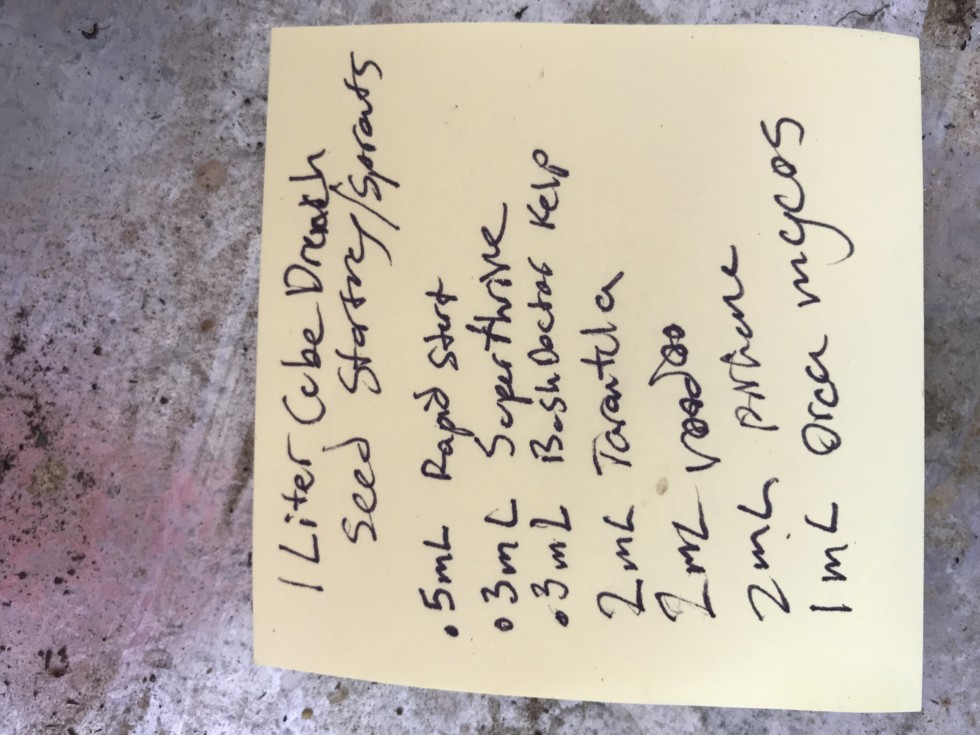 1 Liter Cube Drench
Seed Starting/Sprouts
.5mL Rapid Start
.3mL Superthrive
.3mL BushDoctor Kelp
2mL Tarantula
2mL voodoo
2mL pirhane
1mL Orca mycos